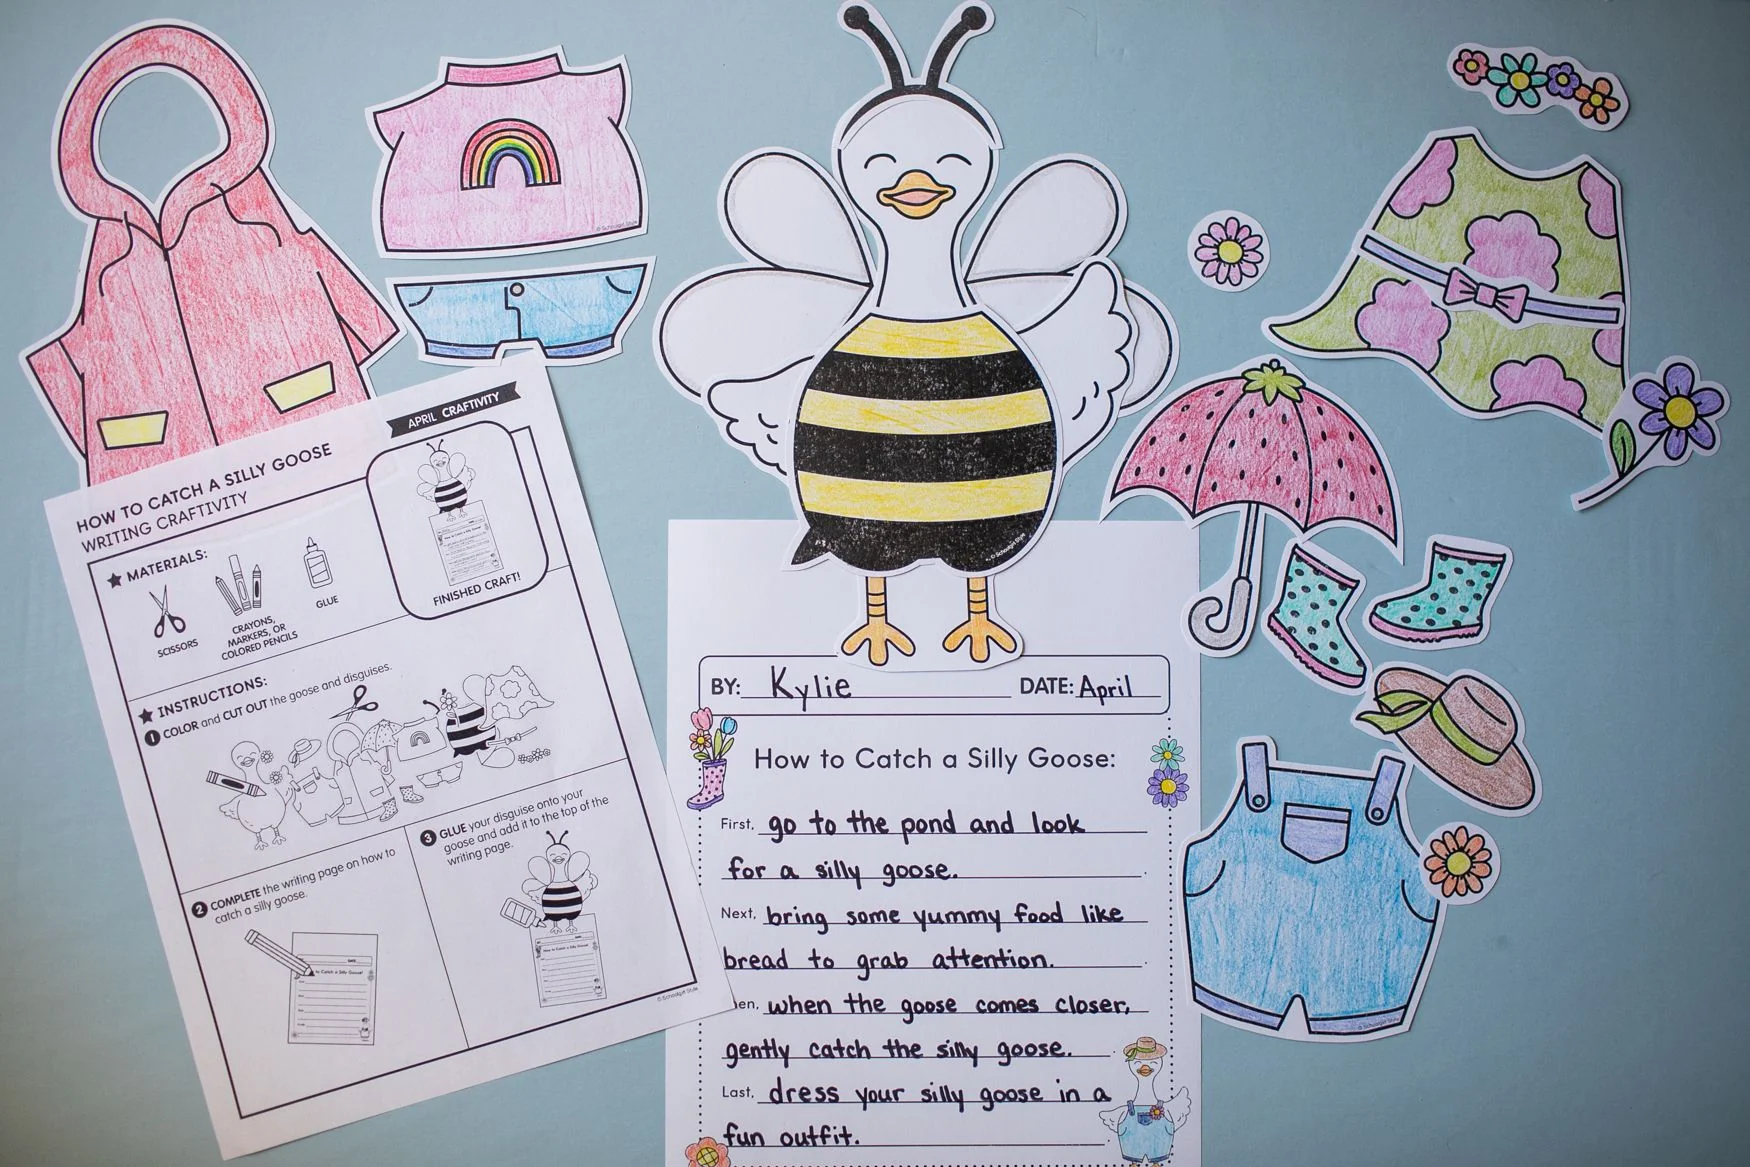 APRIL CRAFTIVITY
HOW TO CATCH A SILLY GOOSE
WRITING CRAFTIVITY
MATERIALS:
SCISSORS
CRAYONS,
MARKERS, OR
COLORED PENCILS
GLUE
FINISHED CRAFT!
INSTRUCTIONS:
1 COLOR and CUT OUT the goose and disguises.
2 COMPLETE the writing page on how to
catch a silly goose.
3 GLUE your disguise onto your
goose and add it to the top of the
writing page.
© Schoolgirl Style
© Schoolgirl Style
© Schoolgirl Style
BY: Kylie DATE: April
How to Catch a Silly Goose:
First, go to the pond and look
for a silly goose.
Next, bring some yummy food like
bread to grab attention.
en, when the goose comes closer,
gently catch the silly goose.
Last, dress your silly goose in a
fun outfit.
© Schoolgirl Style